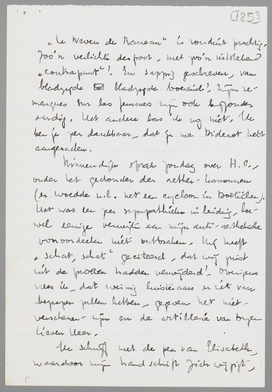 (1853
"Le Neveu de Rameau" is ronduit prachtig.
Zoo'n verlichte despoot, met zoo'n
"contrapunt"! En sappig geschreven, van
bladzijde tot bladzijde boeiend! Zijn re-
marques sur les femmes zijn ook bijzonder
aardig. Het andere las ik nog niet. Ik
ben je zeer dankbaar, dat je me Diderot hebt
aangeraden.
Binnendijk sprak zondag over H.C.,
onder het gedonder der aether-kanonnen
(er woedde n.l. het een cycloon in
Het was een zeer sympathieke inleiding, hoe-
wel eenige verwijten aan mijn anti-aesthetische
vooroordeelen niet ontbraken. Hij heeft
"Schat, schat" geciteerd, dat wij juist
uit de hadden verwijderd! Overigens
vrees ik, dat weinig luisteraars er iets van
begrepen zullen hebben, gegeven het niet-
verschenen-zijn en de artillerie van Onzen
Lieven Heer.
Ik schrijf met de pen van Elisabeth,
waardoor mijn handschrift zich wijzigt,